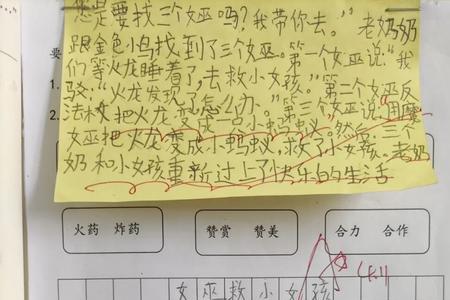 您是要找三个女巫吗？我带你去。”老奶奶
跟金色小鸟找到了三个女巫。第一个女巫说：“我
们等火龙睡着了，去救小女孩。”第二个女巫反
驳：“火龙发现了怎么办。”第三个女巫说：“用魔
法把火龙变成小蚂蚁。”然后，三个
女巫把火龙变成小蚂蚁，救了小女孩。老奶
奶和小女孩重新过上了快乐的生活
要
1.
2.
火药 炸药
赞赏 赞美
合力 合作
女巫救小女孩